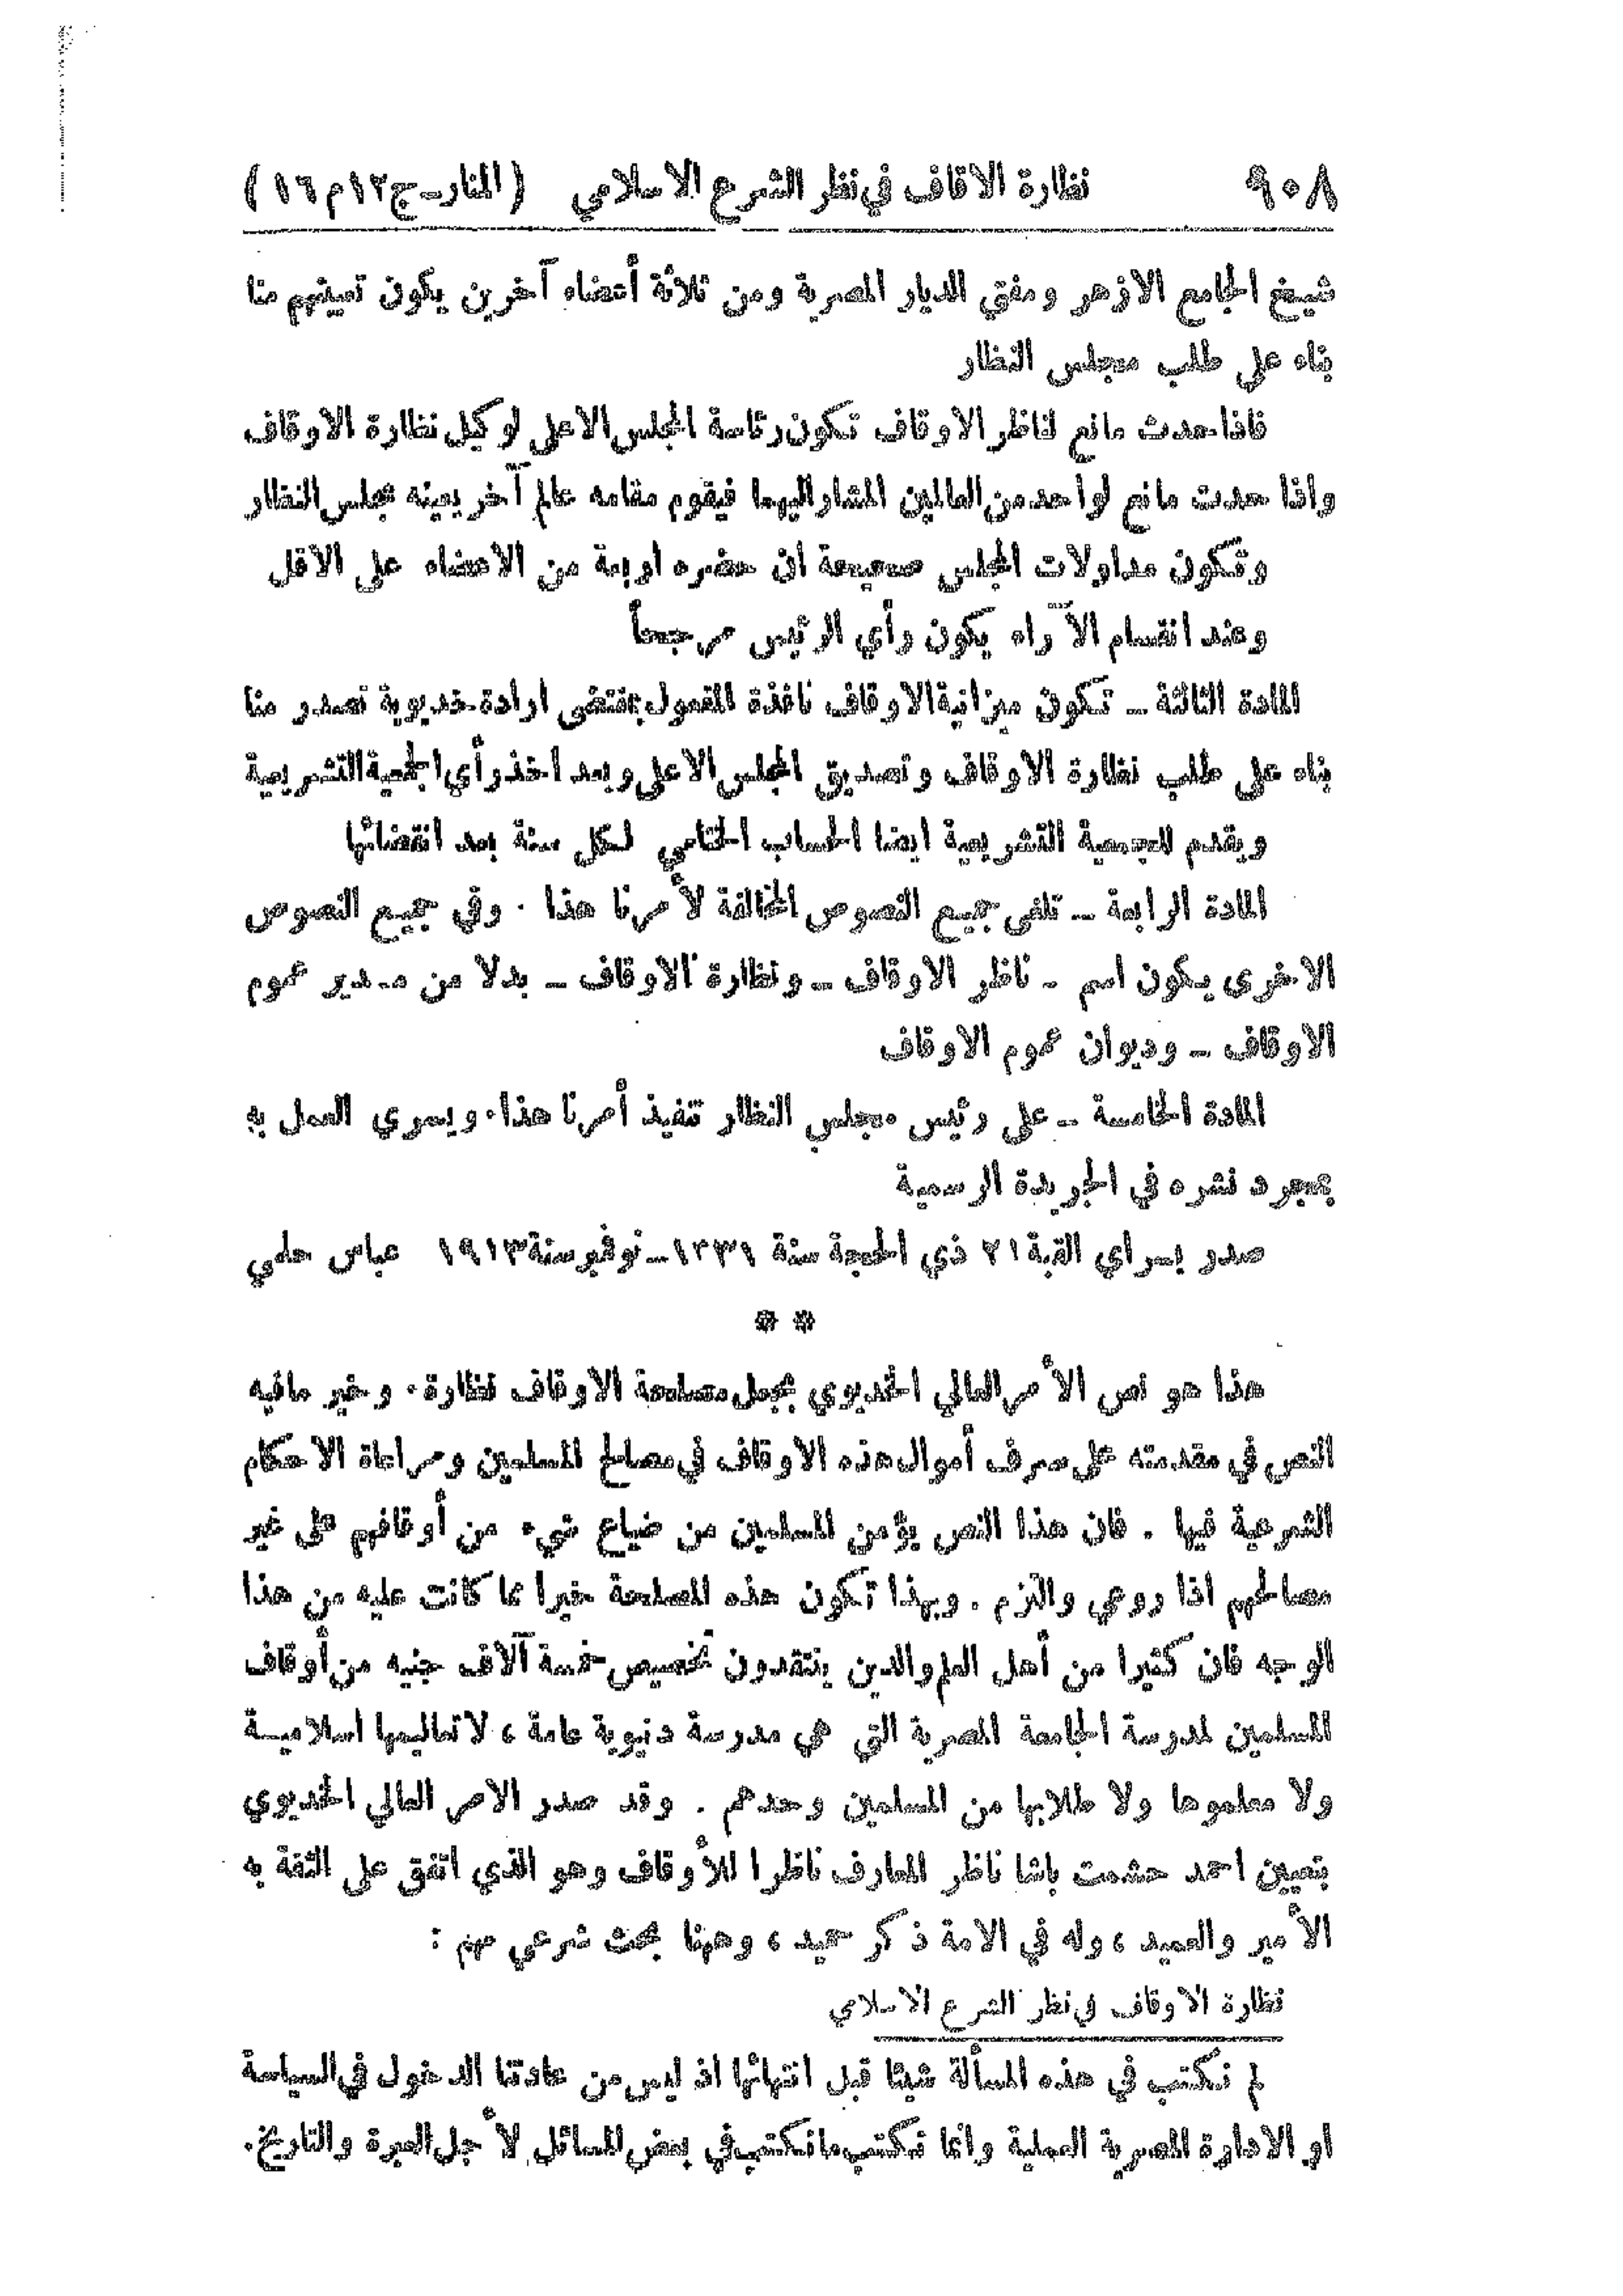 ٩٠٨ نظارة الاقاف في نظر الشرع الاسلامي (المنار ـ ج ١٢ م ١٦)
شيخ الجامع الازهر ومفتي الديار المصرية ومن ثلاثة أعضاء آخرين يكون تعيينهم منا
بناء على طلب مجلس النظار
فاذا حدث مانع لناظر الاوقاف تكون رئاسة المجلس الاعلى لوكيل نظارة الاوقاف
واذا حدث مانع لواحد من العالمين المشار اليهما فيقوم مقامه عالم آخر يعينه مجلس النظار
وتكون مداولات المجلس صحيحة ان حضره اربعة من الاعضاء على الاقل
وعند انقسام الآراء يكون رأي الرئيس مرجحاً
المادة الثالثة ـ تكون ميزانية الاوقاف نافذة المفعول بمقتضى ارادة خديوية تصدر منا
بناء على طلب نظارة الاوقاف وتصديق المجلس الاعلى وبعد اخذ رأي الجمعية التشريعية
ويقدم للجمعية التشريعية ايضا الحساب الختامي لكل سنة بعد انقضائها
المادة الرابعة ـ تلغى جميع النصوص المخالفة لأمرنا هذا . وفي جميع النصوص
الاخرى يكون اسم ـ ناظر الاوقاف ـ ونظارة الاوقاف ـ بدلا من مدير عموم
الاوقاف ـ وديوان عموم الاوقاف
المادة الخامسة ـ على رئيس مجلس النظار تنفيذ أمرنا هذا. ويسري العمل به
بمجرد نشره في الجريدة الرسمية
صدر بسراي القبة ٢١ ذي الحجة سنة ١٣٣١ـ نوفمبر سنة ١٩١٣ عباس حلمي
* *
هذا هو نص الأمر العالي الخديوي بجعل مصلحة الاوقاف نظارة. وخير مافيه
النص في مقدمته على صرف أموال هذه الاوقاف في مصالح المسلمين ومراعاة الاحكام
الشرعية فيها . فان هذا النص يؤمن المسلمين من ضياع شيء من أوقافهم على غير
مصالحهم اذا روعي والتزم . وبهذا تكون هذه المصلحة خيرا مما كانت عليه من هذا
الوجه فان كثيرا من أهل العلم والدين ينتقدون تخصيص خمسة آلاف جنيه من أوقاف
المسلمين لمدرسة الجامعة المصرية التي هي مدرسة دنيوية عامة ، لا تعاليمها اسلامية
ولا معلموها ولا طلابها من المسلمين وحدهم . وقد صدر الامر العالي الخديوي
بتعيين احمد حشمت باشا ناظر المعارف ناظرا للأوقاف وهو الذي اتفق على الثقة به
الأمير والعميد ، وله في الامة ذكر حميد ، وههنا بحث شرعي مهم :
نظارة الاوقاف في نظر الشرع الاسلامي
لم نكتب في هذه المسألة شيئا قبل انتهائها اذ ليس من عادتنا الدخول في السياسة
او الادارة المصرية العملية وانما نكتب مانكتب في بعض المسائل لأجل العبرة والتاريخ.